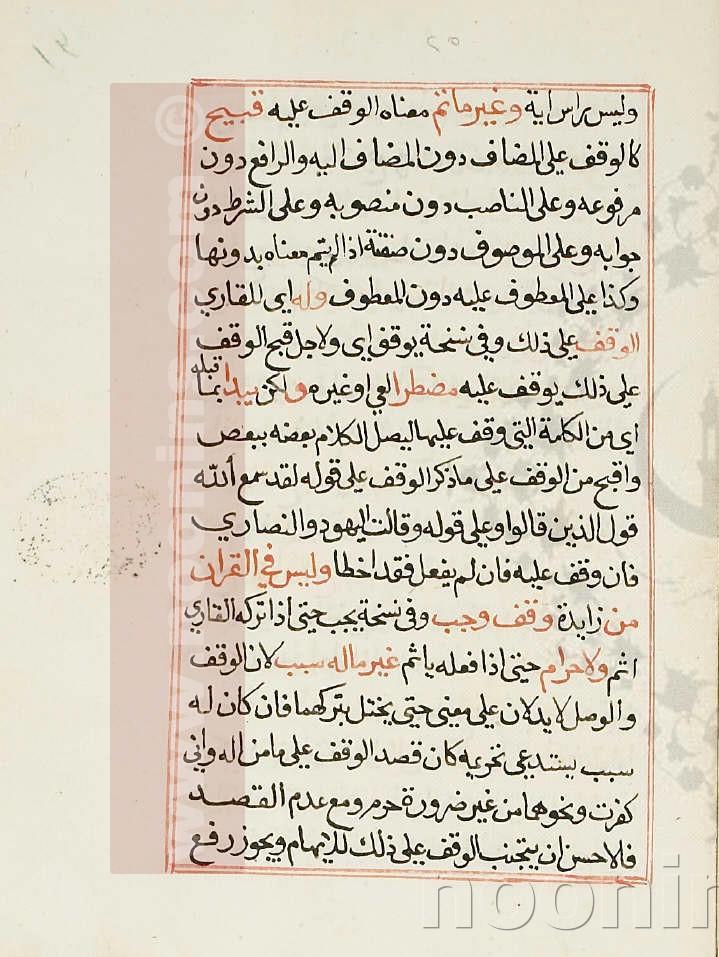 وليس براس اية وغير ماتم معناه الوقف عليه قبيح
كالوقف على المضاف دون المضاف اليه والرافع دون
مرفوعه وعلى الناصب دون منصوبه وعلى الشرط دون
جوابه وعلى الموصوف دون صفته اذا لم يتم معناه بدونها
وكذا على المعطوف عليه دون المعطوف وله اي للقاري
الوقف على ذلك وفي نسخة يوقف اي ولاجل قبح الوقف
على ذلك يوقف عليه مضطرا لعي او غيره ولكن يبدا بما قبله
اي من الكلمة التي وقف عليها ليصل الكلام بعضه ببعض
واقبح من الوقف على ما ذكر الوقف على قوله لقد سمع الله
قول الذين قالوا وعلى قوله وقالت اليهود والنصاري
فان وقف عليه فان لم يفعل فقد اخطا وليس في القران
من زايدة وقف وجب وفي نسخة يجب حتى اذا تركه القاري
اثم ولا حرام حتى اذا فعله ياثم غير ماله سبب لان الوقف
والوصل لا يدلان على معنى حتى يختل بتركهما فان كان له
سبب يستدعي تحريمه كان قصد الوقف على ما من اله واني
كفرت ونحوهما من غير ضرورة حرم ومع عدم القصد
فالاحسن ان يتجنب الوقف على ذلك للايهام ويجوز رفع